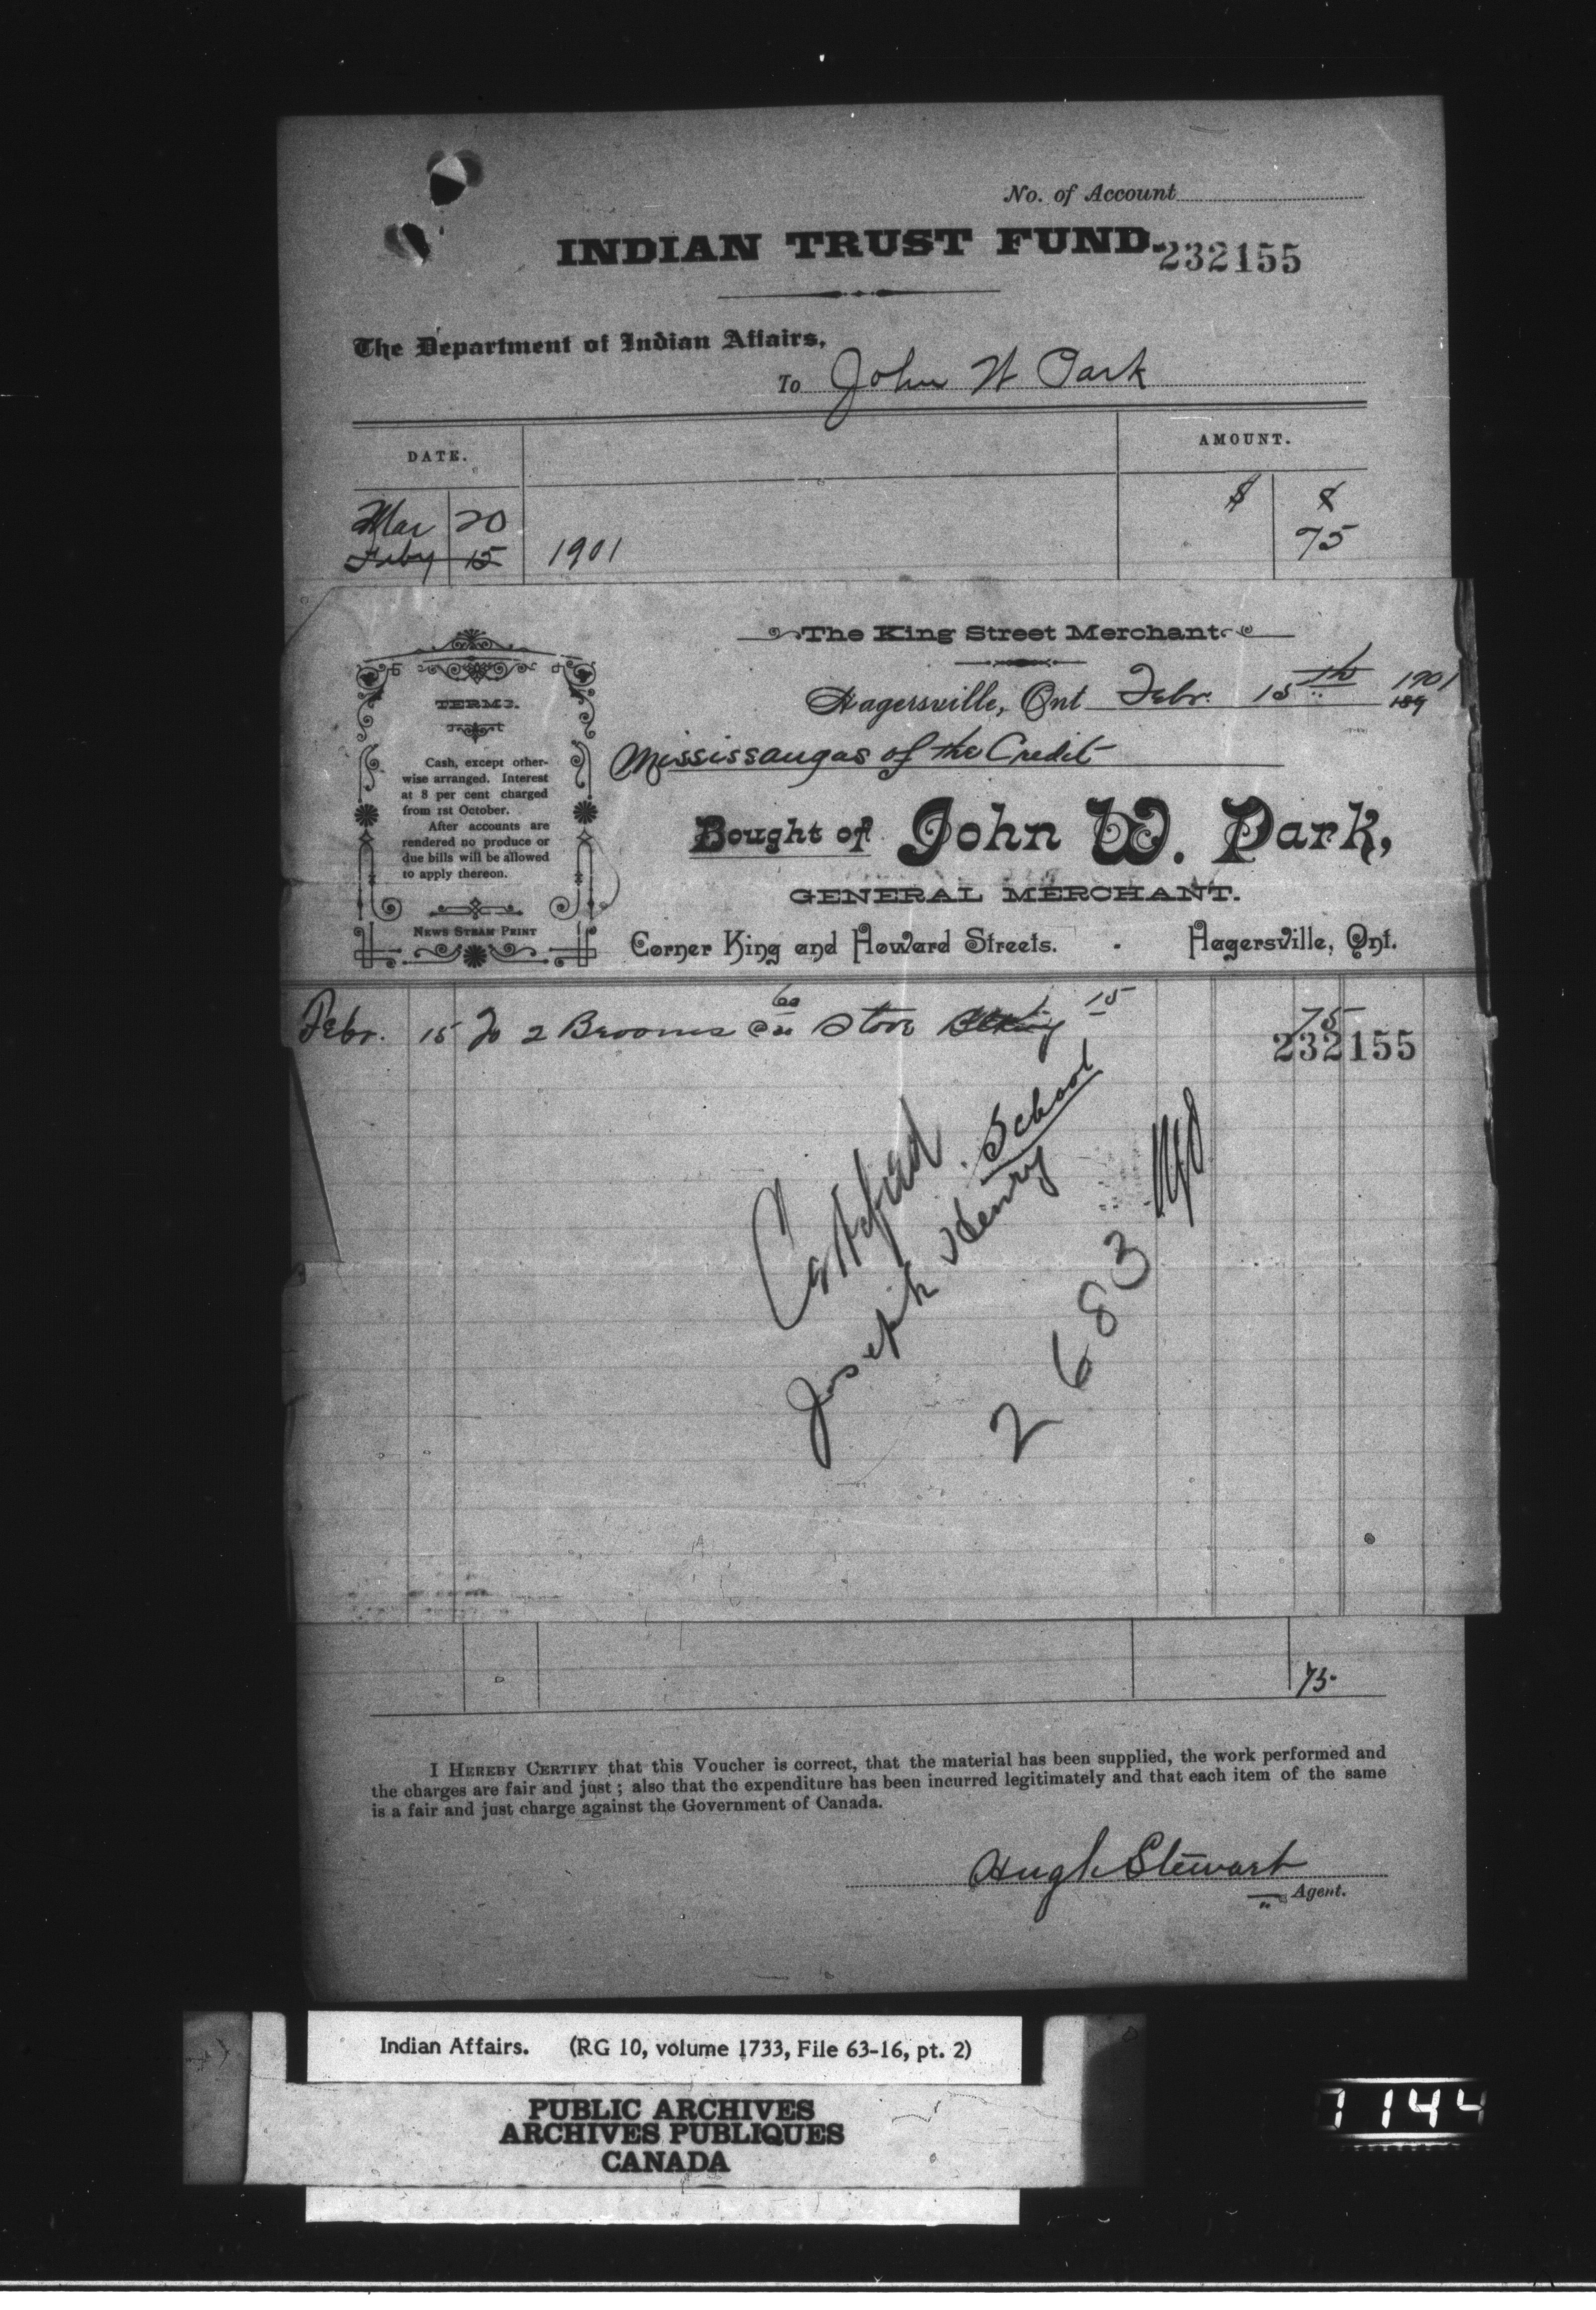 No. of Account
INDIAN TRUST FUND.
232155
The Department of Indian Affairs,
To John W Park
DATE. AMOUNT.
$
Mar 20
Feby 15 1901 75
The King Street Merchant
Hagersville, Ont Febr. 15th 1901
189
Mississaugas of the Credit
Bought of John W. Park,
GENERAL MERCHANT.
Corner King and Howard Streets. Hagersville, Ont.
TERMS.
Cash, except other-
wise arranged. Interest
at 8 per cent charged
from 1st October.
After accounts are
rendered no produce or
due bills will be allowed
to apply thereon.
NEWS STEAM PRINT
Febr. 15 To 2 Brooms 60 Stove 15 75
232155
School
Certified
Joseph Henry
2683
75
I HEREBY CERTIFY that this Voucher is correct, that the material has been supplied, the work performed and
the charges are fair and just; also that the expenditure has been incurred legitimately and that each item of the same
is a fair and just charge against the Government of Canada.
Hugh Stewart
Agent.
Indian Affairs. (RG 10, volume 1733, File 63-16, pt. 2)
PUBLIC ARCHIVES
ARCHIVES PUBLIQUES
CANADA
1144